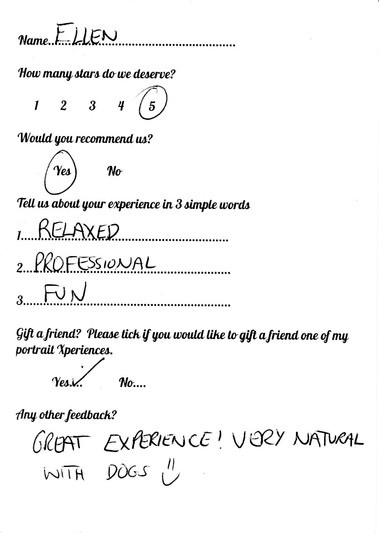 Name..ELLEN
How many stars do we deserve?
1 2 3 4 5
Would you recommend us?
Yes No
Tell us about your experience in 3 simple words
1....RELAXED
2..PROFESSIONAL
3.....FUN
Gift a friend? Please tick if you would like to gift a friend one of my
portrait Xperiences.
Yes.✓.. No....
Any other feedback?
GREAT EXPERIENCE! VERY NATURAL
WITH DOGS